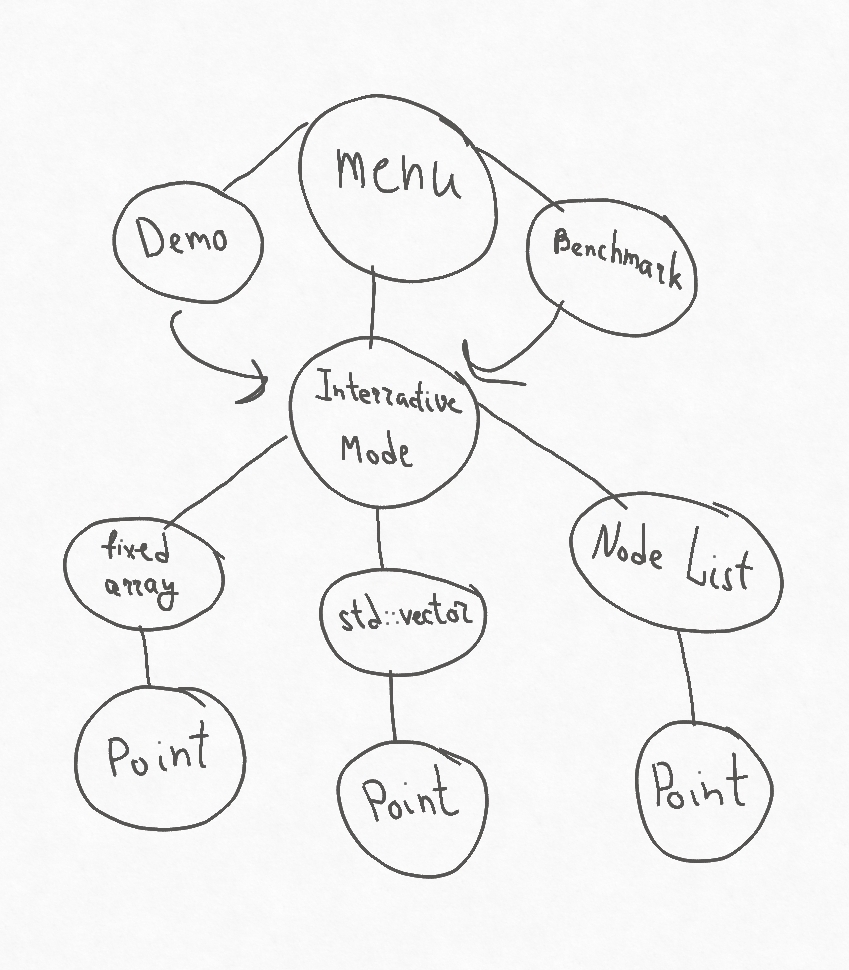 Menu
Demo
Benchmark
Interradive
Mode
fixed
array
std::vector
Node List
Point
Point
Point